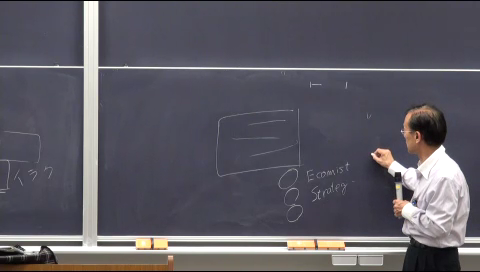 イラク
Ecomist
Strategy.